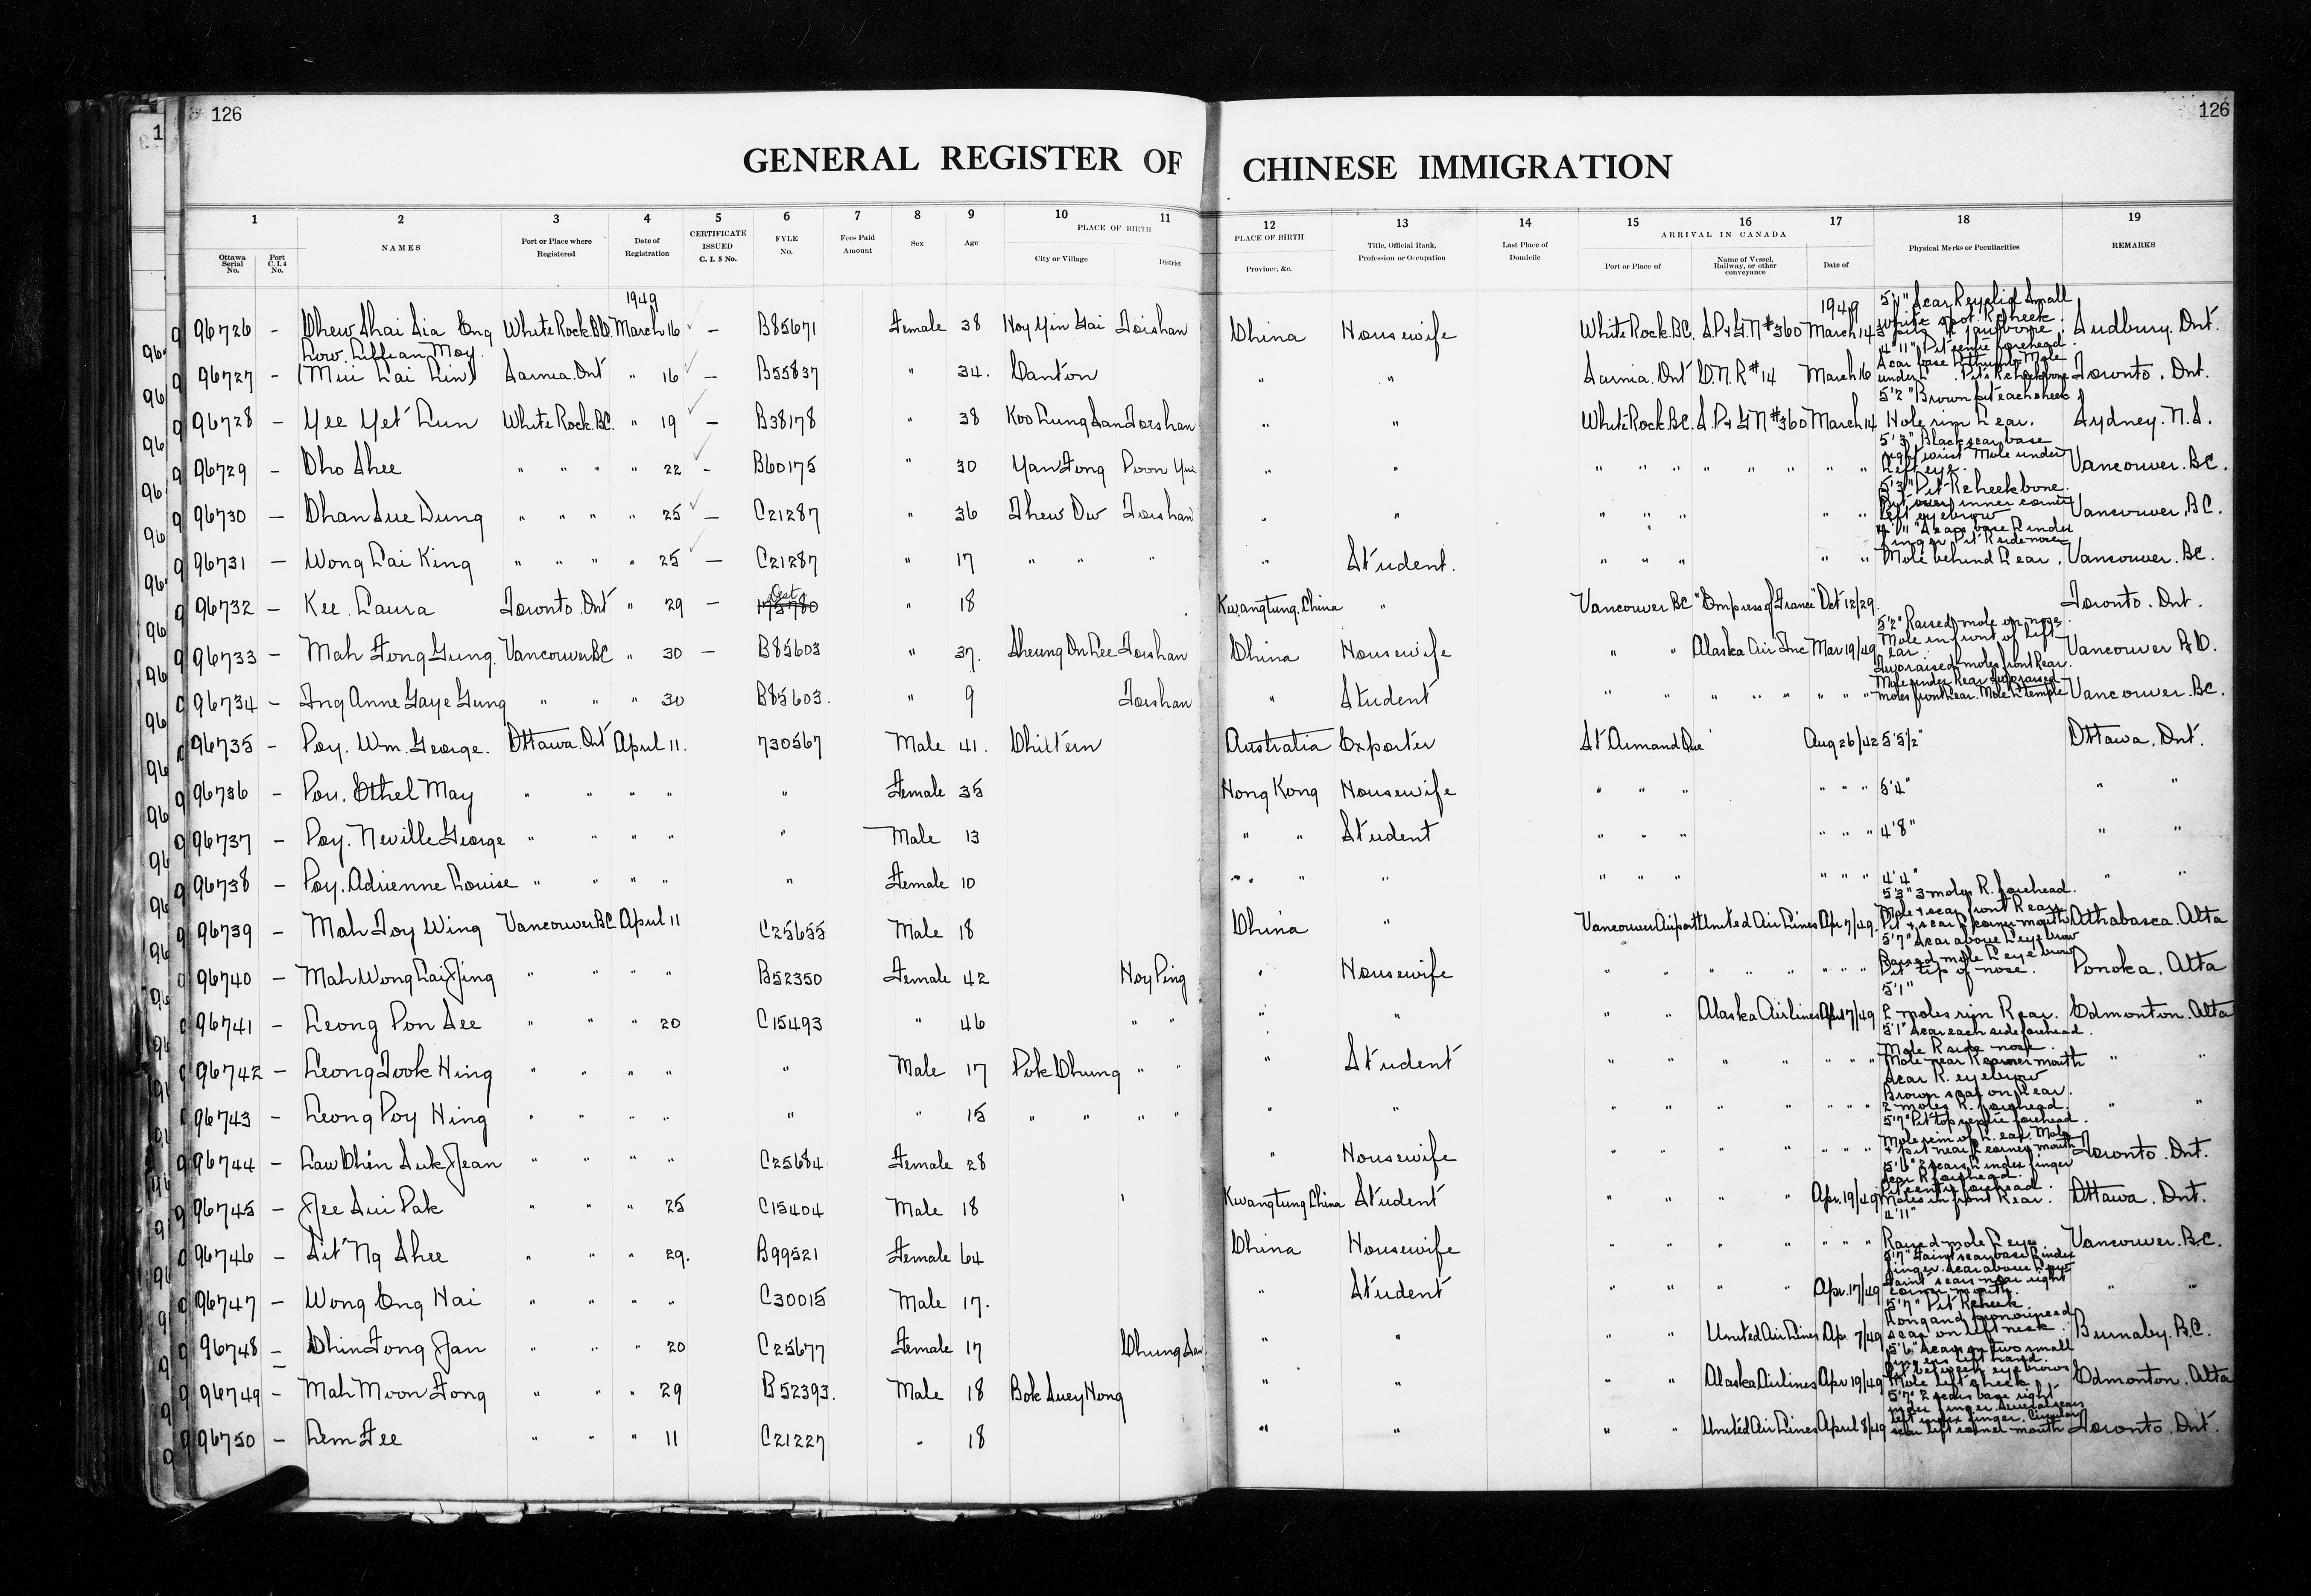 126
126
GENERAL REGISTER OF CHINESE IMMIGRATION
1 2 3 4 5 6 7 8 9 10 11 12 13 14 15 16 17 18 19
NAMES Port or Place where Registered Date of Registration CERTIFICATE ISSUED C. I. 5 No. FYLE No. Fees Paid Amount Sex Age PLACE OF BIRTH PLACE OF BIRTH Title, Official Rank, Profession or Occupation Last Place of Domicile ARRIVAL IN CANADA Physical Marks or Peculiarities REMARKS
Ottawa Serial No. Port C. I. 4 No. City or Village District Province, &c. Port or Place of Name of Vessel, Railway, or other conveyance Date of
1949 1949
96726 - Chew Shai Sia Eng White Rock. B.C. March 16 - B85671 Female 38 Hoy Yin Gai Toishan China Housewife White Rock. B.C. S.P. & G.N #360 March 14 Sudbury. Ont.
Low. Lillian May.
96727 - (Mui Lai Lin) Sarnia. Ont " 16 - B55837 " 34. Canton " " Sarnia. Ont C.N.R #14 March 16 Toronto. Ont.
96728 - Yee Yet Lun White Rock. B.C. " 19 - B38178 " 38 Koo Lung San Toishan " " White Rock. B.C. S.P. & G.N #360 March 14 5'2" Brown pit each cheek Hole rim L ear. Sydney. N.S.
96729 - Cho Shee " " " " 22 - B60175 " 30 Yan Tong Poon Yue " " " " " " " " " " 5'3" Black scar base right wrist Mole under Left eye. Vancouver. B.C.
96730 - Chan Sue Dung " " " " 25 - C21287 " 36 Thew Cw Toishan " " " " " " " 5'3" Pit R cheek bone. Pit over inner corner Left eyebrow Vancouver, B.C.
96731 - Wong Lai King " " " " 25 - C21287 " 17 " " " " Student. " " " " " 4'11" Scars base L index finger Pit R side nose Mole behind L ear. Vancouver. B.C.
96732 - Kee. Laura Toronto. Ont " 29 - " 18 Kwangtung, China " Vancouver BC "Empress of France" Oct 12/29. Toronto. Ont.
96733 - Mah Fong Gung. Vancouver BC " 30 - B85603 " 37. Sheung On Lee Toishan China Housewife " " Alaska Air Inc Mar 19/49 5'2" Raised mole on nose Mole in front of left ear Vancouver B.C.
96734 - Ing Anne Gaye Gung " " " 30 B85603. " 9 Toishan " Student " " " " " " " " Vancouver. B.C.
96735 - Poy. Wm. George. Ottawa. Ont April 11. 730567 Male 41. Chiltern Australia Exporter St Armand Que Aug 26/42 5'5½" Ottawa. Ont.
96736 - Poy. Ethel May " " " " " Female 35 Hong Kong Housewife " " " " " " 5'4" " "
96737 - Poy. Neville George " " " " " Male 13 " " Student " " " " " " 4'8" " "
96738 - Poy. Adrienne Louise " " " " " Female 10 " " " " " " " " " 4'4" " "
96739 - Mah Foy Wing Vancouver BC April 11 C25655 Male 18 China " Vancouver Airport United Air Lines Apr 7/49. 5'3" 3 moles R. forehead. Mole & scar front R ear Pit & scar L corner mouth Athabasca. Alta
96740 - Mah Wong Lai Jing " " " " B52350 Female 42 Hoy Ping " Housewife " " " " " " " " 5'7" Scar above L eyebrow Raised mole L eyebrow Pit tip of nose. Ponoka. Alta
96741 - Leong Pon See " " " 20 C15493 " 46 " " " " " " Alaska Airlines Apr 17/49 5'1" 2 moles rim R ear. Edmonton. Alta
96742 - Leong Took Hing " " " " " Male 17 Pok Chung " " " Student " " " " " " " 5'1" Scar each side forehead. Mole R side nose. Mole near R corner mouth " "
96743 - Leong Poy Hing " " " " " " 15 " " " " " " " " " " " " " Scar R. eyebrow Brown spot on L ear. 2 moles R. forehead. " "
96744 - Law Chen Suk Jean " " " " C25684 Female 28 " Housewife " " " " " " " 5'7" Pit top centre forehead. Mole rim of L. ear. Mole & pit near L corner mouth Toronto. Ont.
96745 - Jee Sui Pak " " " 25 C15404 Male 18 Kwangtung China Student " " " " Apr. 19/49 5'6" 2 scars L index finger Scar R forehead. Pit centre forehead. Moles in front R ear. Ottawa. Ont.
96746 - Sit Ng Shee " " " 29. B99521 Female 64 China Housewife " " " " " " " 4'11" Raised mole L eye. Vancouver. B.C.
96747 - Wong Eng Hai " " " " C30015 Male 17. " Student " " " " Apr. 17/49 " "
96748 - Chin Fong Jan " " " 20 C25677 Female 17 Chung San " " " " United Air Lines Apr 7/49 5'7" Pit R cheek. Long and pronounced scar on left neck. Burnaby. B.C.
96749 - Mah Moon Fong " " " 29 B52393. Male 18 Bok Suey Hong " " " " Alaska Airlines Apr 19/49 5'6" Scars on two small fingers left hand. Pit between eyebrows Mole left cheek Edmonton. Alta
96750 - Lem Fee " " " 11 C21227 " 18 " " " " United Air Lines April 8/49 5'7" 2 scars base right index finger. Several scars left index finger. Circular scar left corner mouth Toronto. Ont.